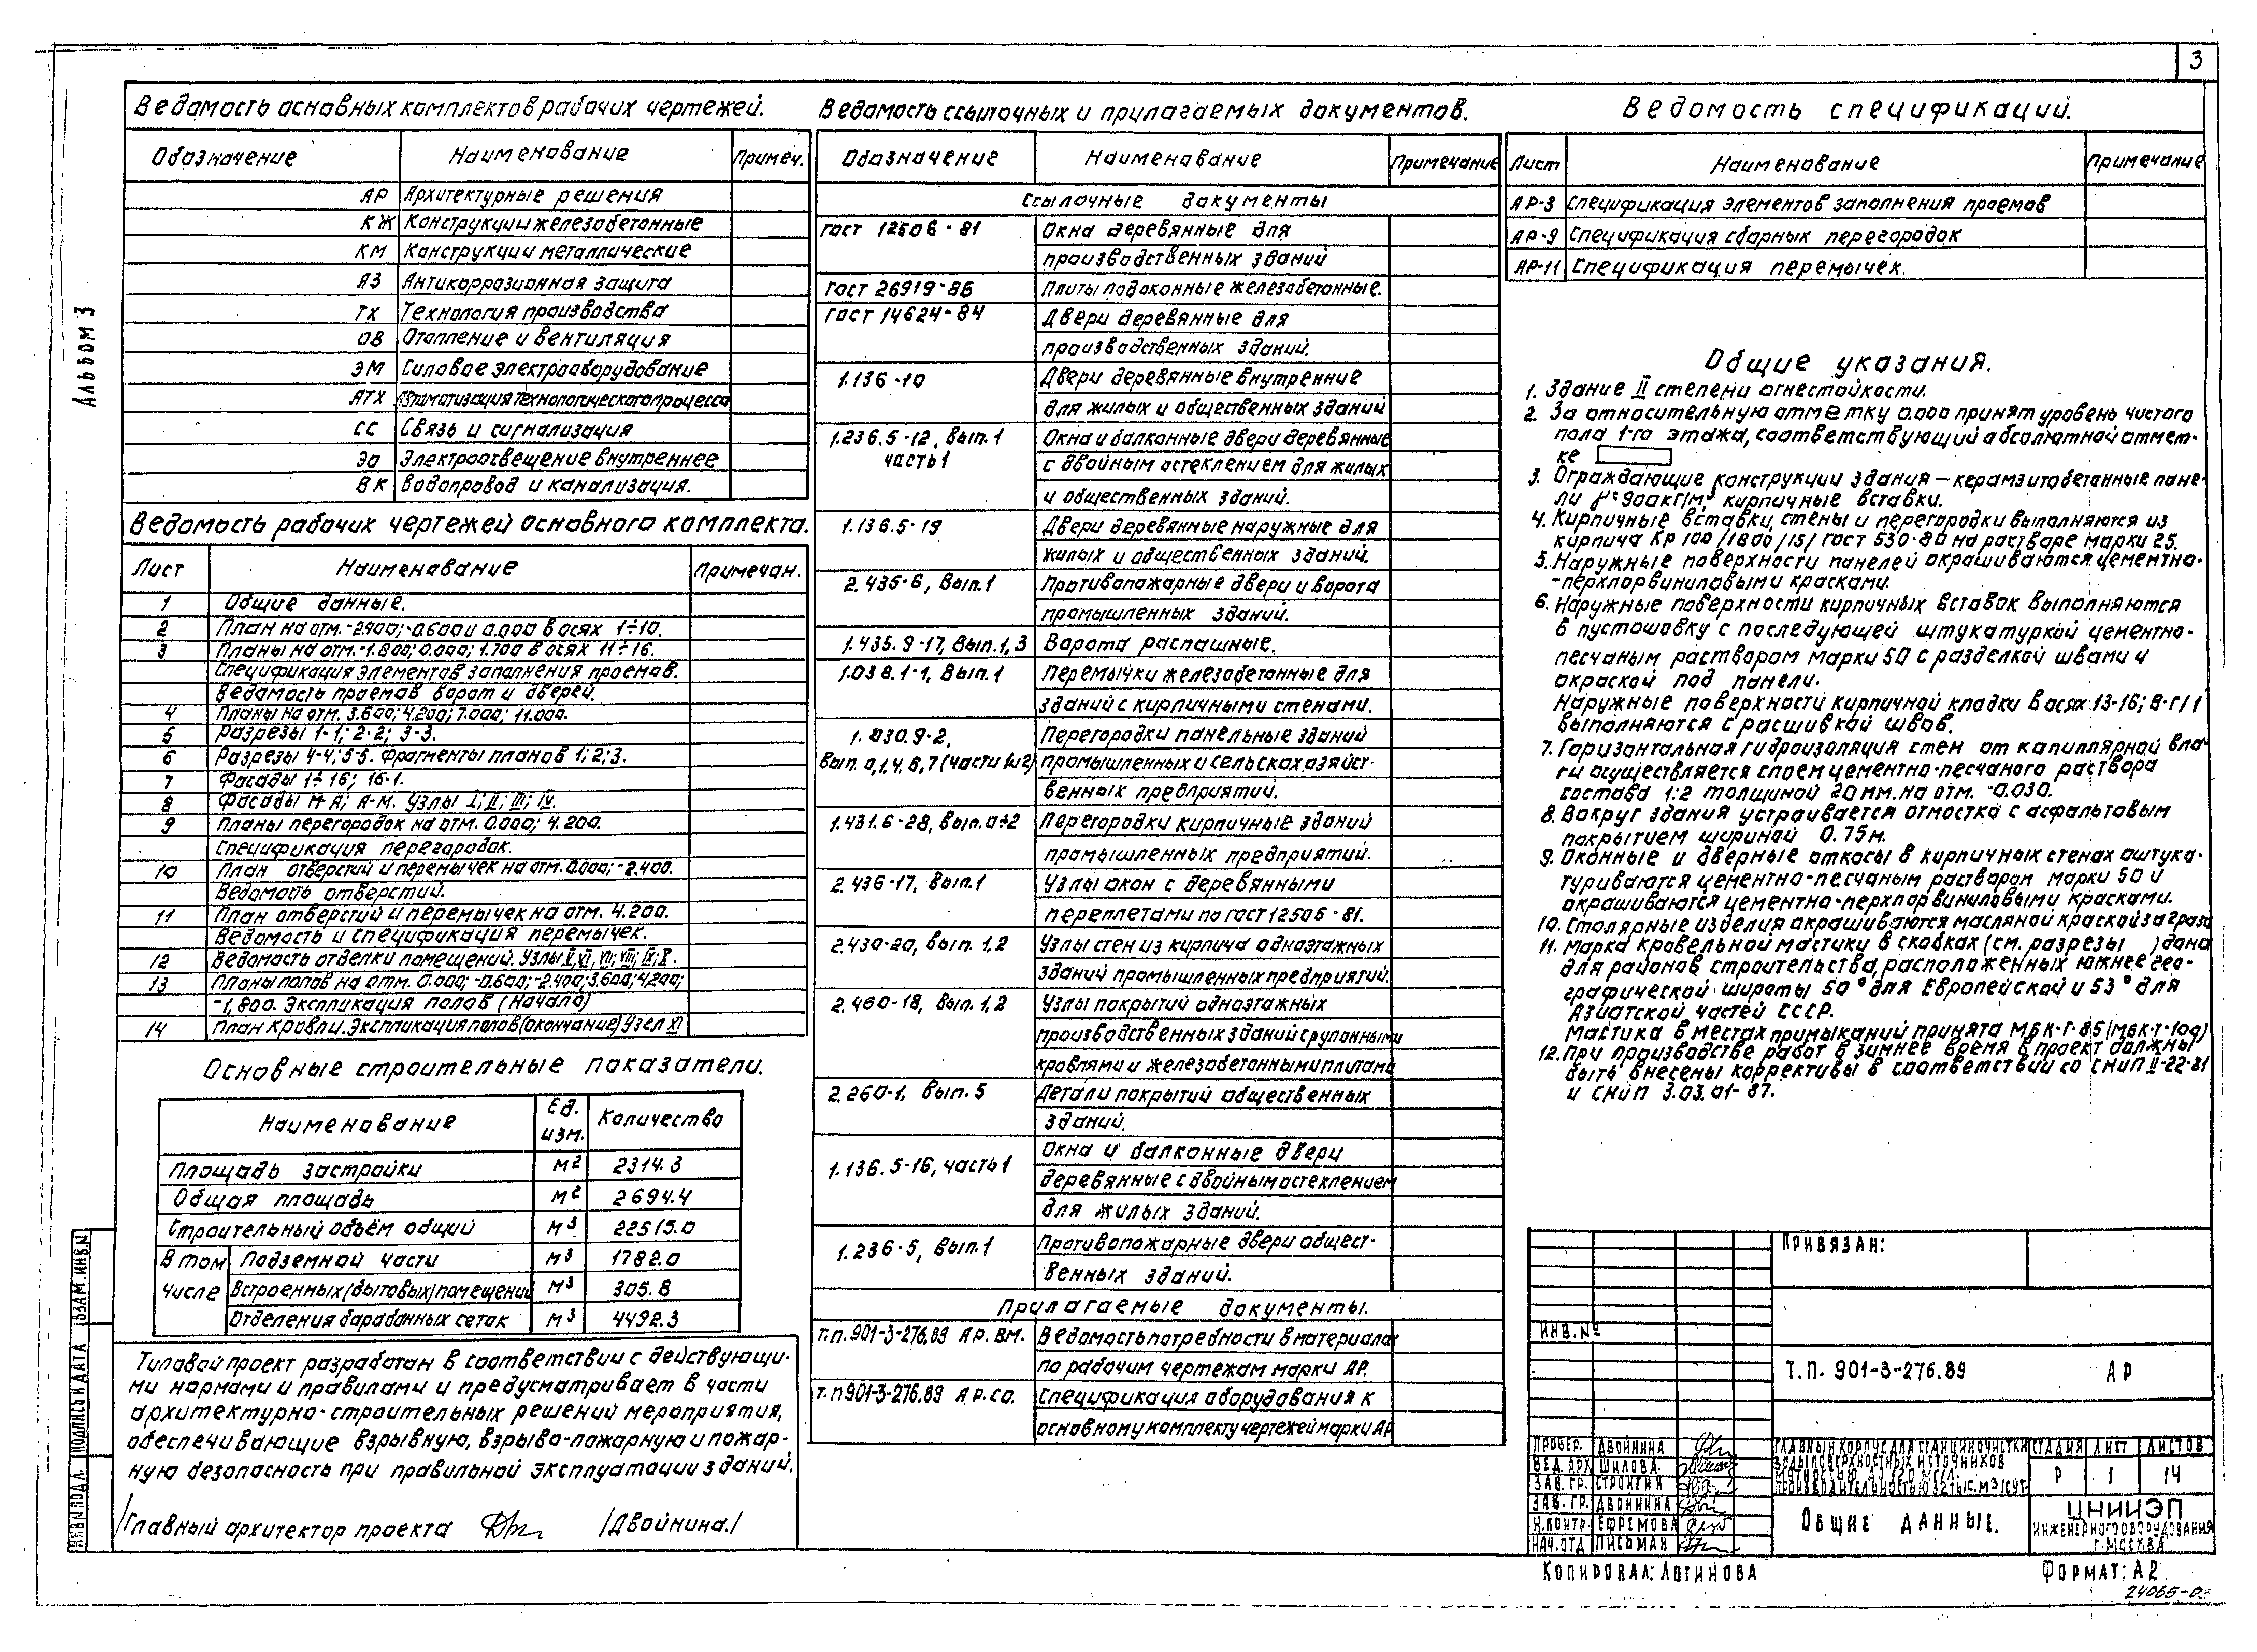 3
Альбом 3
Ведомость основных комплектов рабочих чертежей.
Обозначение Наименование Примеч.
АР Архитектурные решения
КЖ Конструкции железобетонные
КМ Конструкции металлические
АЗ Антикоррозионная защита
ТХ Технология производства
ОВ Отопление и вентиляция
ЭМ Силовое электрооборудование
АТХ Автоматизация технологического процесса
СС Связь и сигнализация
ЭО Электроосвещение внутреннее
ВК Водопровод и канализация.
Ведомость рабочих чертежей основного комплекта.
Лист Наименование Примечан.
1 Общие данные.
2 План на отм. -2.400; -0.600 и 0.000 в осях 1÷10.
3 Планы на отм. -1.800; 0.000; 1.700 в осях 11÷16.
Спецификация элементов заполнения проемов.
Ведомость проемов ворот и дверей.
4 Планы на отм. 3.600; 4.200; 7.000; 11.000.
5 Разрезы 1-1; 2-2; 3-3.
6 Разрезы 4-4; 5-5. Фрагменты планов 1; 2; 3.
7 Фасады 1÷16; 16-1.
8 Фасады М-А; А-М. Узлы I; II; III; IV.
9 Планы перегородок на отм. 0.000; 4.200.
Спецификация перегородок.
10 План отверстий и перемычек на отм. 0.000; -2.400.
Ведомость отверстий.
11 План отверстий и перемычек на отм. 4.200.
Ведомость и спецификация перемычек.
12 Ведомость отделки помещений. Узлы V, VI, VII; VIII; IX; X.
13 Планы полов на отм. 0.000; -0.600; -2.400; 3.600; 4.200;
-1,800. Экспликация полов (начало)
14 План кровли. Экспликация полов (окончание) Узел XI
Основные строительные показатели.
Наименование Ед. изм. Количество
Площадь застройки м2 2314.3
Общая площадь м2 2694.4
Строительный объём общий м3 22515.0
В том числе Подземной части м3 1782.0
Встроенных (бытовых) помещений м3 305.8
Отделения барабанных сеток м3 4492.3
Типовой проект разработан в соответствии с действующи-
ми нормами и правилами и предусматривает в части
архитектурно-строительных решений мероприятия,
обеспечивающие взрывную, взрыво-пожарную и пожар-
ную безопасность при правильной эксплуатации зданий.
Главный архитектор проекта /Двойнина./
Ведомость ссылочных и прилагаемых документов.
Обозначение Наименование Примечание
Ссылочные документы
ГОСТ 12506-81 Окна деревянные для
производственных зданий
ГОСТ 26919-86 Плиты подоконные железобетонные.
ГОСТ 14624-84 Двери деревянные для
производственных зданий.
1.136-10 Двери деревянные внутренние
для жилых и общественных зданий
1.236.5-12, вып. 1 Окна и балконные двери деревянные
часть 1 с двойным остеклением для жилых
и общественных зданий.
1.136.5-19 Двери деревянные наружные для
жилых и общественных зданий.
2.435-6, Вып. 1 Противопожарные двери и ворота
промышленных зданий.
1.435.9-17, Вып. 1, 3 Ворота распашные.
1.038.1-1, Вып. 1 Перемычки железобетонные для
зданий с кирпичными стенами.
1.030.9-2, Перегородки панельные зданий
Вып. 0,1,4,6,7 (части 1и2) промышленных и сельскохозяйст-
венных предприятий.
1.431.6-28, вып. 0÷2 Перегородки кирпичные зданий
промышленных предприятий.
2.436-17, Вып. 1 Узлы окон с деревянными
переплетами по гост 12506-81.
2.430-20, вып. 1,2 Узлы стен из кирпича одноэтажных
зданий промышленных предприятий.
2.460-18, Вып. 1,2 Узлы покрытий одноэтажных
производственных зданий с рулонными
кровлями и железобетонными плитами
2.260-1, вып. 5 Детали покрытий общественных
зданий.
1.136.5-16, часть 1 Окна и балконные двери
деревянные с двойным остеклением
для жилых зданий.
1.236-5, вып. 1 Противопожарные двери общест-
венных зданий.
Прилагаемые документы.
т.п. 901-3-276.89 АР.ВМ. Ведомость потребности в материалах
по рабочим чертежам марки АР.
т.п 901-3-276.89 АР.СО. Спецификация оборудования к
основному комплекту чертежей марки АР
Ведомость спецификаций.
Лист Наименование Примечание
АР-3 Спецификация элементов заполнения проемов
АР-9 Спецификация сборных перегородок
АР-11 Спецификация перемычек.
Общие указания.
1. Здание II степени огнестойкости.
2. За относительную отметку 0.000 принят уровень чистого
пола 1-го этажа, соответствующий абсолютной отмет-
ке
3. Ограждающие конструкции здания — керамзитобетонные пане-
ли γ=900кг/м3, кирпичные вставки.
4. Кирпичные вставки, стены и перегородки выполняются из
кирпича Кр 100/1800/15/ гост 530-80 на растворе марки 25.
5. Наружные поверхности панелей окрашиваются цементно-
-перхлорвиниловыми красками.
6. Наружные поверхности кирпичных вставок выполняются
в пустошовку с последующей штукатуркой цементно-
песчаным раствором марки 50 с разделкой швами и
окраской под панели.
Наружные поверхности кирпичной кладки в осях 13-16; В-Г/1
выполняются с расшивкой швов.
7. Горизонтальная гидроизоляция стен от капиллярной вла-
ги осуществляется слоем цементно-песчаного раствора
состава 1:2 толщиной 20 мм. на отм. -0.030.
8. Вокруг здания устраивается отмостка с асфальтовым
покрытием шириной 0.75м.
9. Оконные и дверные откосы в кирпичных стенах оштука-
туриваются цементно-песчаным раствором марки 50 и
окрашиваются цементно-перхлорвиниловыми красками.
10. Столярные изделия окрашиваются масляной краской за 2 раза
11. Марка кровельной мастики в скобках (см. разрезы ) дана
для районов строительства, расположенных южнее гео-
графической широты 50° для Европейской и 53° для
Азиатской частей СССР.
Мастика в местах примыканий принята МБК-Г-85 (МБК-Г-100)
12. При производстве работ в зимнее время в проект должны
быть внесены коррективы в соответствии со СНиП II-22-81
и СНиП 3.03.01-87.
Привязан:
Инв. №
Т.П. 901-3-276.89 АР
Провер. Двойнина
Вед. арх Шилова
Зав. гр. Стронгин
Зав. гр. Двойнина
Н. контр. Ефремова
Нач. отд Письман
Главный корпус для станции очистки
воды поверхностных источников
мутностью до 120 мг/л.
производительностью 32 тыс. м3/сут.
Стадия Лист Листов
Р 1 14
Общие данные.
ЦНИИЭП
инженерного оборудования
г. Москва
Взам. инв. №
Подпись и дата
Инв. № подл.
Копировал: Логинова
Формат: А2
24065-03